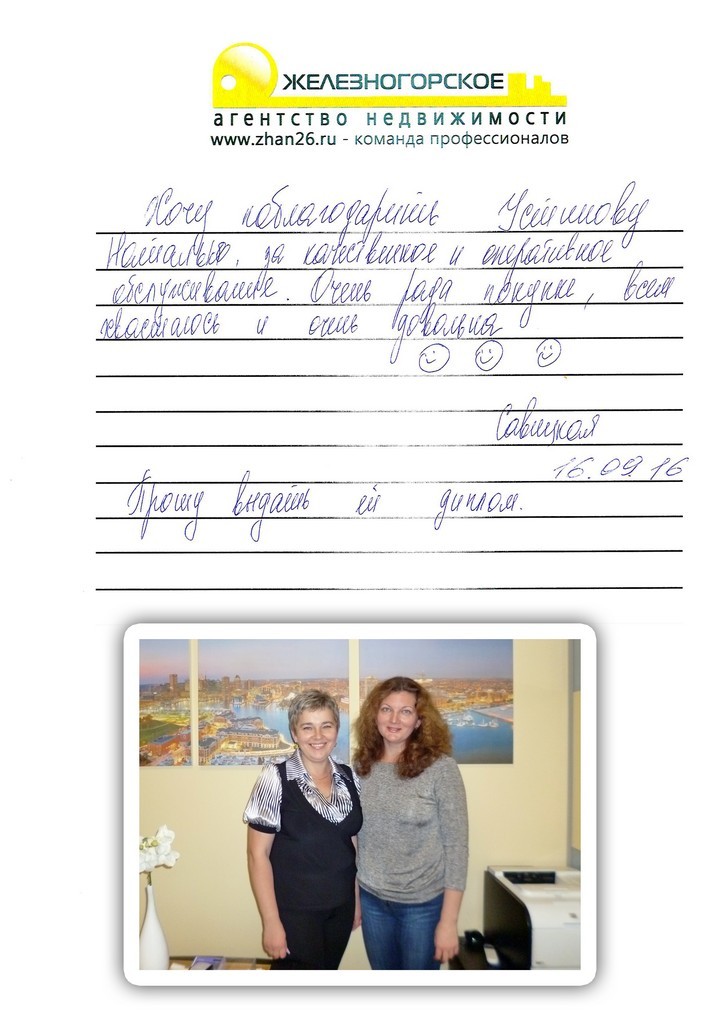 ЖЕЛЕЗНОГОРСКОЕ
агентство недвижимости
www.zhan26.ru - команда профессионалов
Хочу поблагодарить Устинову
Наталью, за качественное и оперативное
обслуживание. Очень рада покупке, всем
хвасталось и очень довольна
Савицкая
16.09.16
Прошу выдать ей диплом.